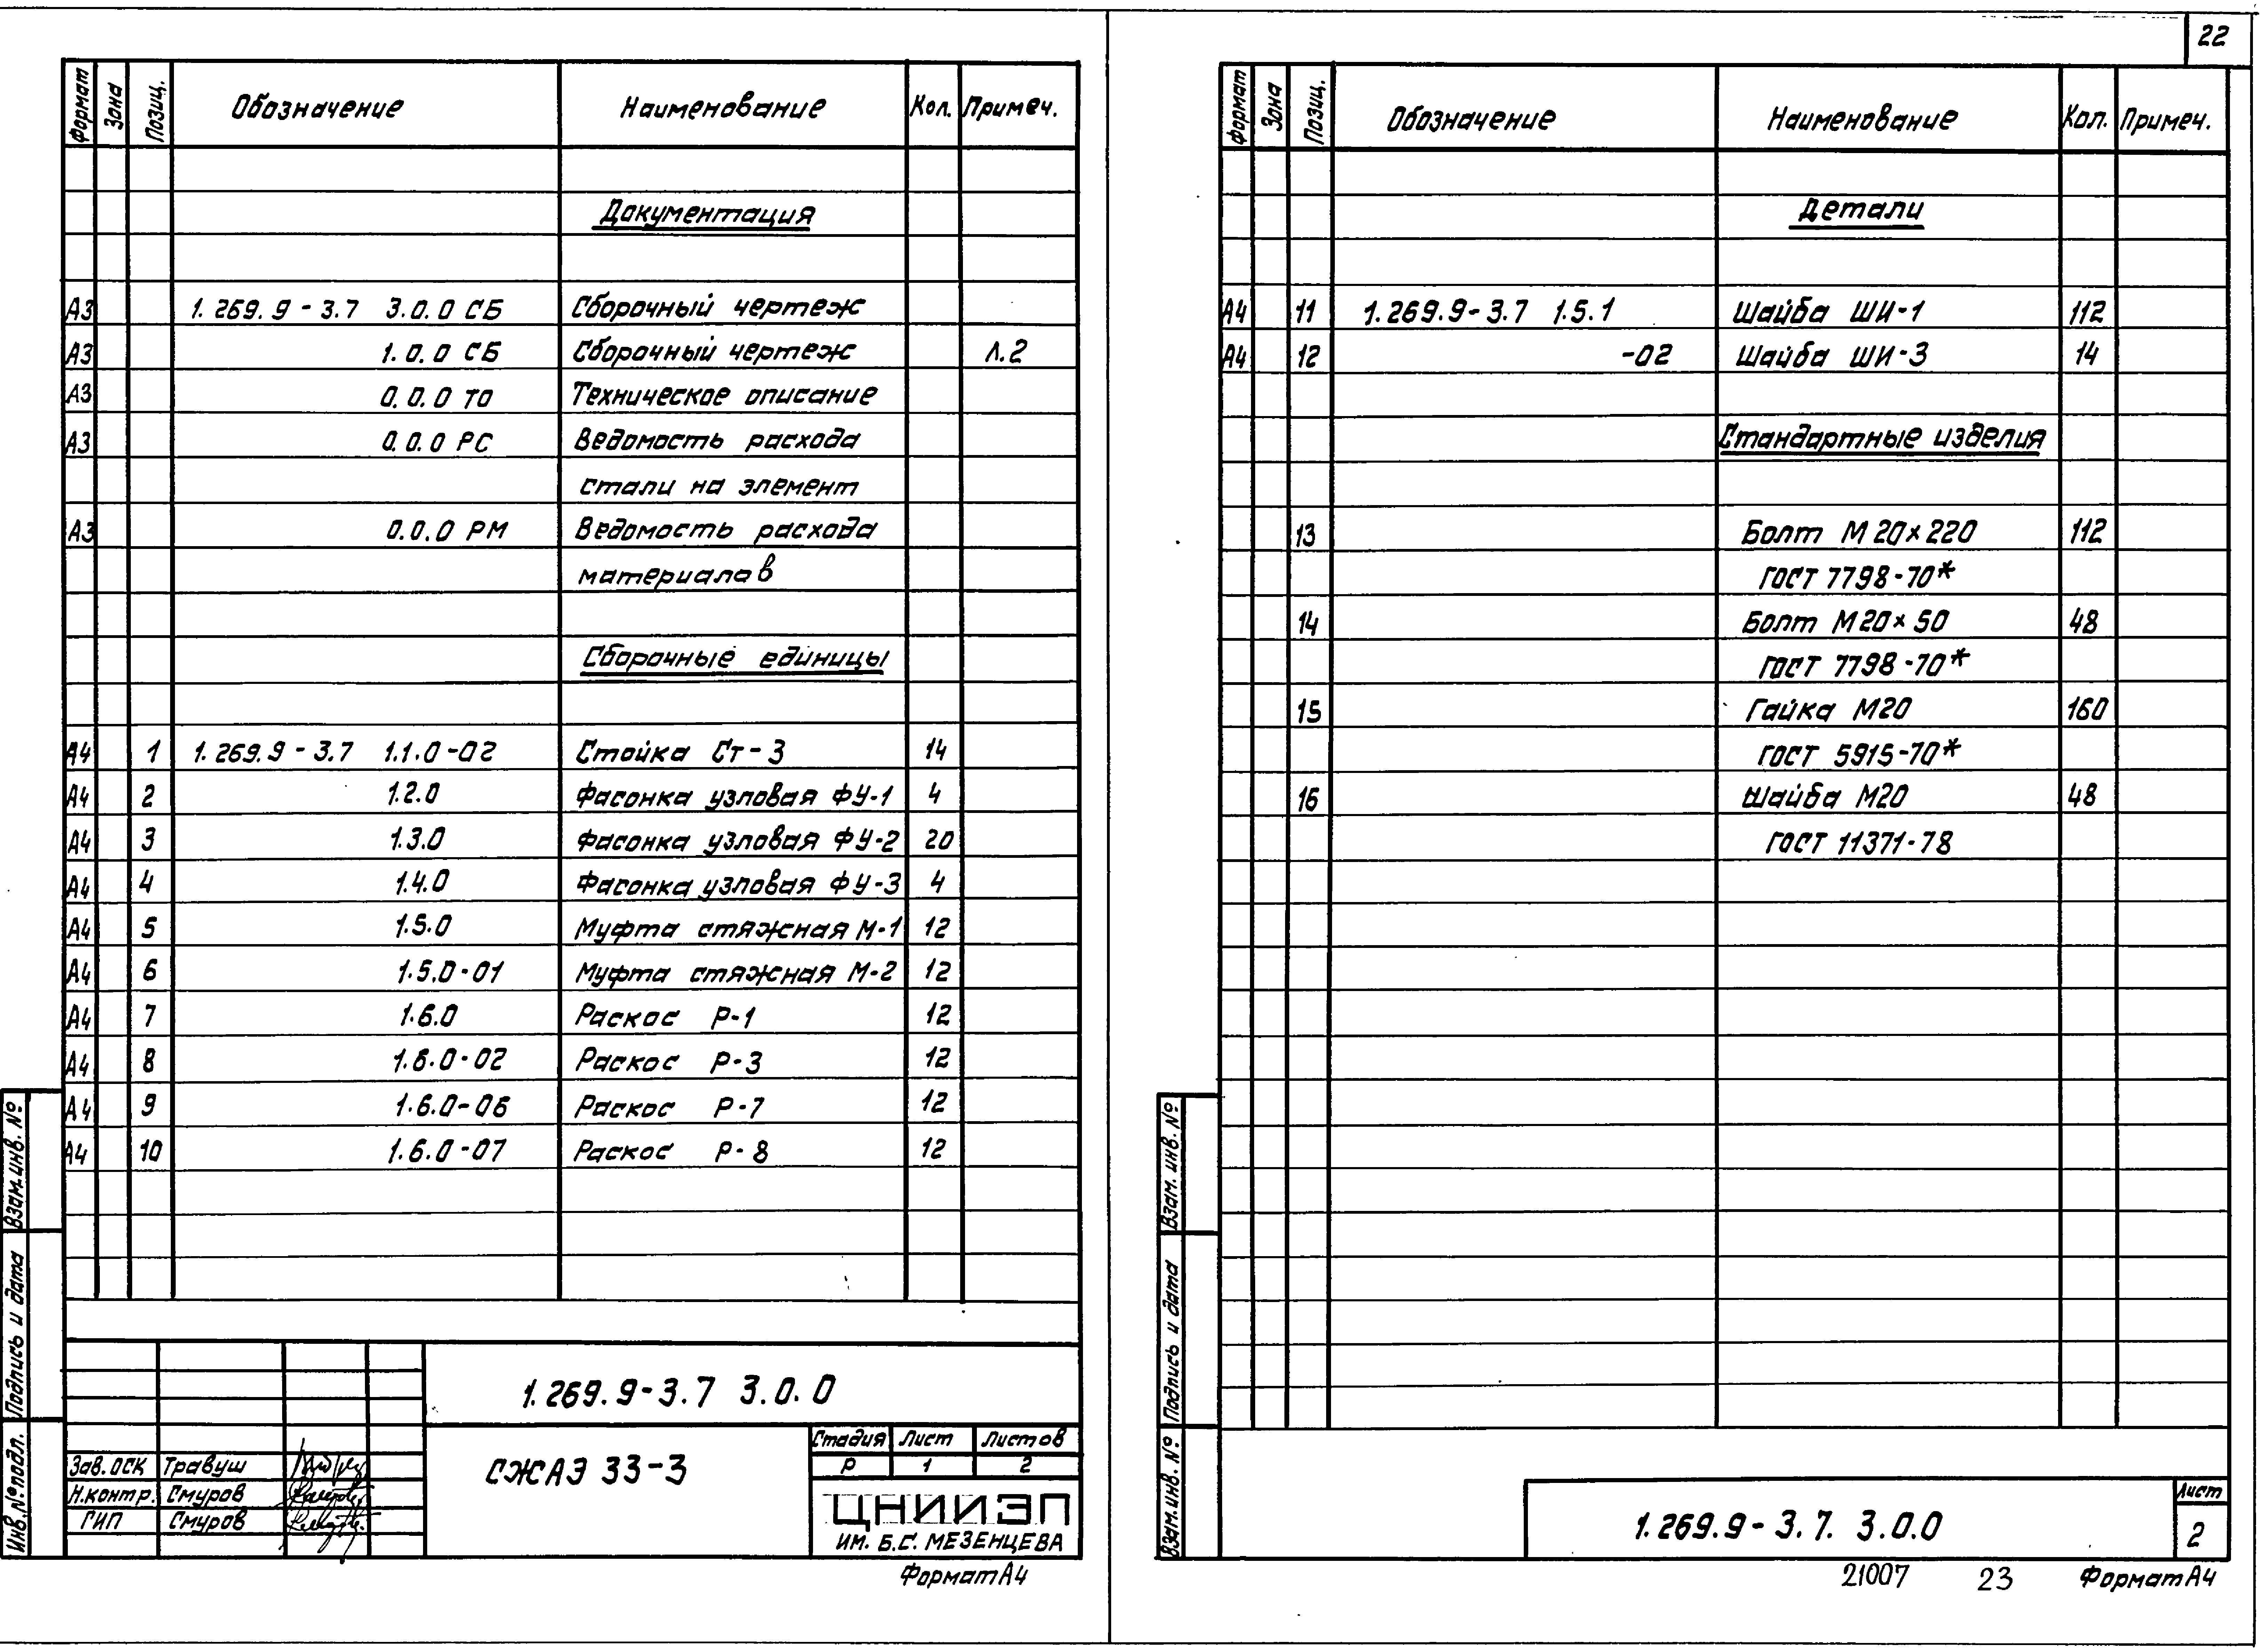 22
Формат Зона Позиц. Обозначение Наименование Кол. Примеч.
Документация
А3 1.269.9-3.7 3.0.0 СБ Сборочный чертеж
А3 1.0.0 СБ Сборочный чертеж Л.2
А3 0.0.0 ТО Техническое описание
А3 0.0.0 РС Ведомость расхода
стали на элемент
А3 0.0.0 РМ Ведомость расхода
материалов
Сборочные единицы
А4 1 1.269.9-3.7 1.1.0-02 Стойка Ст-3 14
А4 2 1.2.0 Фасонка узловая ФУ-1 4
А4 3 1.3.0 Фасонка узловая ФУ-2 20
А4 4 1.4.0 Фасонка узловая ФУ-3 4
А4 5 1.5.0 Муфта стяжная М-1 12
А4 6 1.5.0-01 Муфта стяжная М-2 12
А4 7 1.6.0 Раскос Р-1 12
А4 8 1.6.0-02 Раскос Р-3 12
А4 9 1.6.0-06 Раскос Р-7 12
А4 10 1.6.0-07 Раскос Р-8 12
Взам.инв. №
Подпись и дата
Инв.№подл.
1.269.9-3.7 3.0.0
СЖАЭ 33-3
Стадия Лист Листов
Р 1 2
Зав.ОСК Травуш
Н.контр. Смуров
ГИП Смуров
ЦНИИЭП
ИМ. Б.С. МЕЗЕНЦЕВА
Формат А4
Формат Зона Позиц. Обозначение Наименование Кол. Примеч.
Детали
А4 11 1.269.9-3.7 1.5.1 Шайба ШИ-1 112
А4 12 -02 Шайба ШИ-3 14
Стандартные изделия
13 Болт М20×220 112
ГОСТ 7798-70*
14 Болт М20×50 48
ГОСТ 7798-70*
15 Гайка М20 160
ГОСТ 5915-70*
16 Шайба М20 48
ГОСТ 11371-78
Взам. инв. №
Подпись и дата
Взам.инв. №
1.269.9-3.7. 3.0.0
Лист
2
21007 23 Формат А4